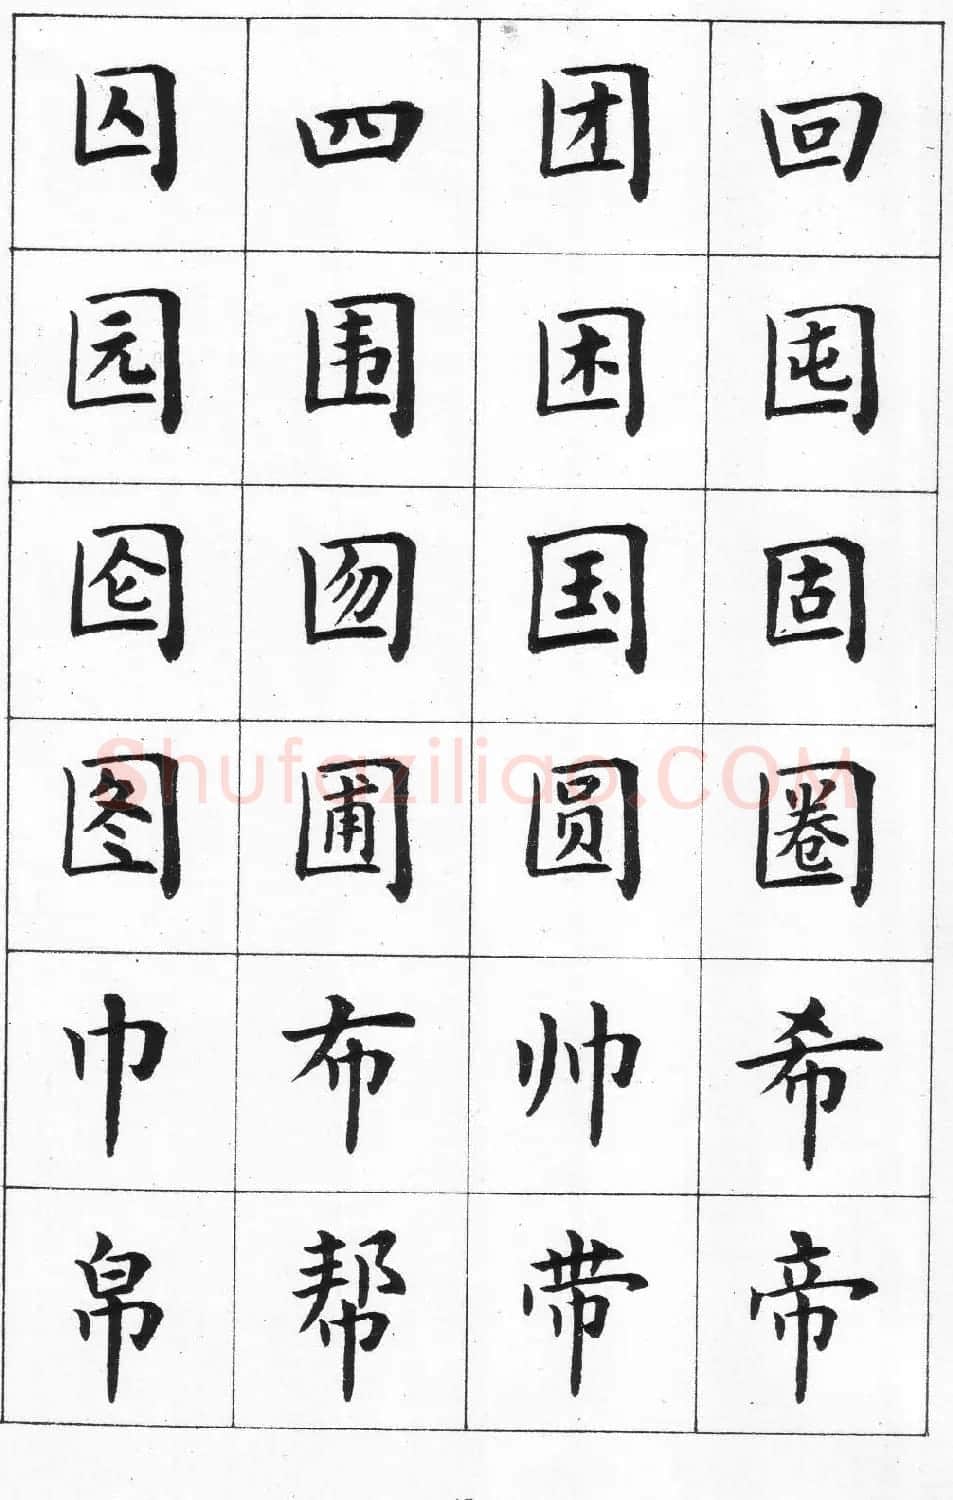 囚 四 团 回
园 围 困 囤
囵 囫 国 固
图 圃 圆 圈
shufaziliao.COM
巾 布 帅 希
帛 帮 带 帝